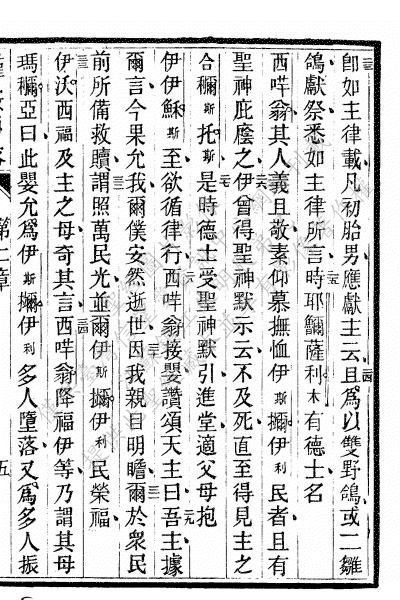 卽如主律載凡初胎男應獻主云且爲以雙野鴿或二雛
鴿獻祭悉如主律所言時耶䤈薩利木有德士名
西哶翁其人義且敬素仰慕撫恤伊斯擟伊利民者且有
聖神庇廕之伊曾得聖神默示云不及死直至得見主之
合穪斯托斯是時德士受聖神默引進堂適父母抱
伊伊穌斯至欲循律行西哶翁接嬰讚頌天主曰吾主據
爾言今果允我爾僕安然逝世因我親目明瞻爾於衆民
前所備救贖謂照萬民光並爾伊斯擟伊利民榮福
伊沃西福及主之母奇其言西哶翁降福伊等乃謂其母
瑪穪亞曰此嬰允爲伊斯擟伊利多人墮落又爲多人振
第二章
五